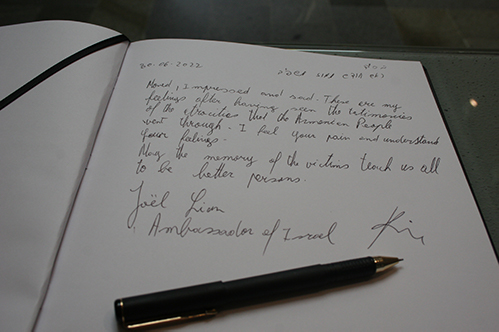 20.06.2022
Moved, impressed and sad. These are my
feelings after having seen the testimonies
of the atrocities that the Armenian People
went through. I feel your pain and understand
your feelings.
May the memory of the victims teach us all
to be better persons.
Joël Lion
Ambassador of Israel